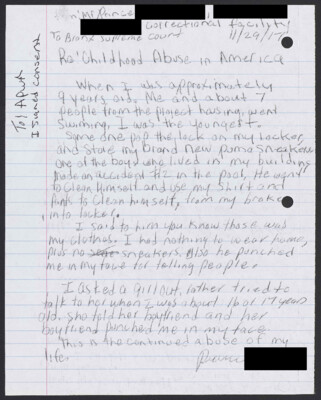 From: Mr Prince
Correctional facility
To Bronx Supreme Court 11/29/17
To! APWA
I signed consent
Re: Childhood Abuse in America
When I was approximately
9 years old. Me and about 7
people from the project housing, went
swimming, I was the youngest.
Some one pop the lock on my locker,
and stole my brand new puma sneakers
one of the boys who lived in my building
made an accident #2 in the pool, He went
to clean himself and use my shirt and
pants to clean himself, from my broke
into locker.
I said to him you know those was
my clothes. I had nothing to wear home,
plus no sneakers. Also he punched
me in my face for telling people.
I asked a girl out, rather tried to
talk to her when I was about 16 or 17 years
old. She told her boyfriend and her
boyfriend punched me in my face
This is the continued abuse of my
life.